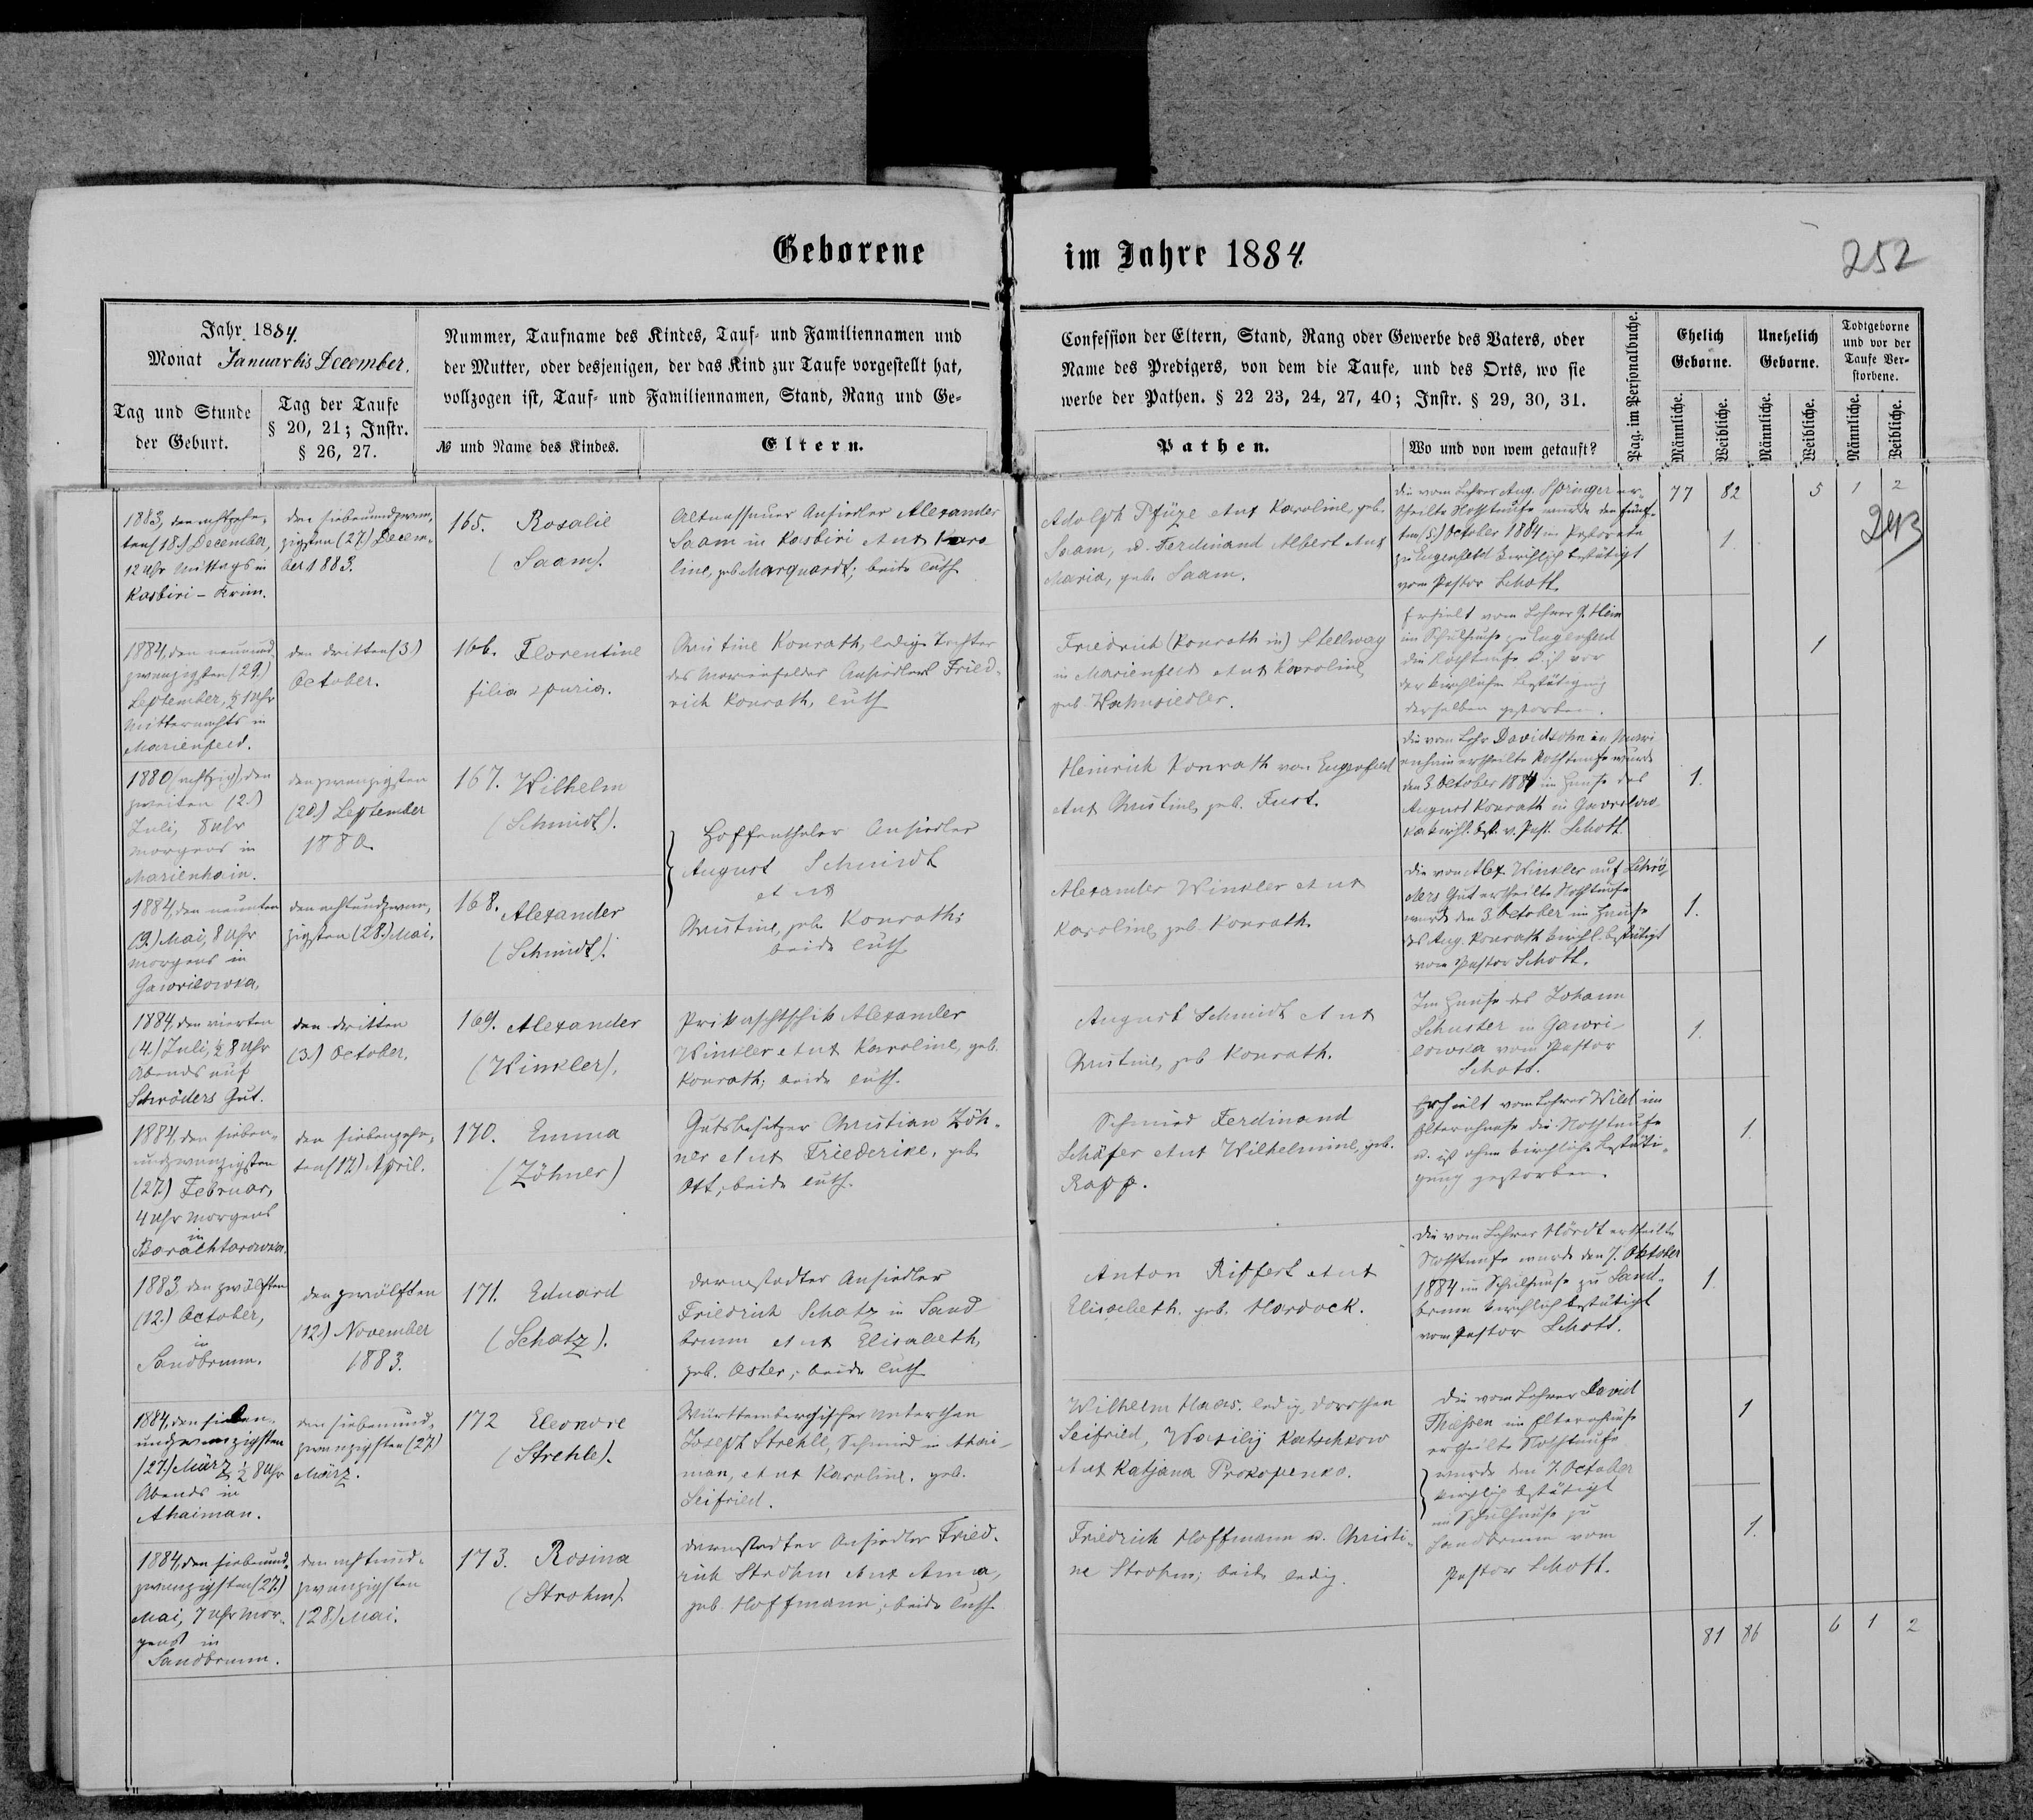 Geborene im Jahre 1884.
252
Jahr 1884.
Monat Januar bis December.
Tag und Stunde
der Geburt.
Tag der Taufe
§ 20, 21; Instr.
§ 26, 27.
Nummer, Taufname des Kindes, Tauf- und Familiennamen und
der Mutter, oder desjenigen, der das Kind zur Taufe vorgestellt hat,
vollzogen ist, Tauf- und Familiennamen, Stand, Rang und Ge-
№ und Name des Kindes.
Eltern.
Confession der Eltern, Stand, Rang oder Gewerbe des Vaters, oder
Name des Predigers, von dem die Taufe, und des Orts, wo sie
werbe der Pathen. § 22 23, 24, 27, 40; Instr. § 29, 30, 31.
Pathen.
Wo und von wem getauft?
Pag. im Personalbuche.
Ehelich
Geborne.
Unehelich
Geborne.
Todtgeborne
und vor der
Taufe Ver-
storbene.
Männliche.
Weibliche.
Männliche.
Weibliche.
Männliche.
Weibliche.
77 82 5 1 2
243
1883, den achtzehn-
ten (18.) December,
12 Uhr Mittags in
Kasbiri - Krim.
den siebenundzwan-
zigsten (27.) Decem-
ber 1883.
165. Rosalie
(Saam).
Altnassauer Ansiedler Alexander
Saam in Kasbiri et ux Karo
line, geb. Marquardt; beide luth
Adolph Pfüze et ux Karoline geb.
Saam, u. Ferdinand Albert et ux
Maria, geb. Saam.
Die vom Lehrer Aug. Springer er-
theilte Nothtaufe wurde den fünf-
ten (5.) October 1884 im Pastorate
zu Eugenfeld kirchlich bestätigt
vom Pastor Schott
1.
1884, den neunund
zwanzigsten (29.)
September, ½ 1 Uhr
Mitternachts in
Marienfeld.
den dritten (3.)
October.
166. Florentine
filia spuria.
Christine Konrath, ledige Tochter
des Marienfelder Ansiedlers Fried-
rich Konrath, luth
Friedrich (Konrath in) Stellwag
in Marienfeld et ux Karoline
geb. Wahnsiedler.
Erhielt vom Lehrer G. Hein
im Schulhause zu Eugenfeld
die Nothtaufe u. ist vor
der kirchlichen Bestätigung
derselben gestorben.
1
1880 (achtzig), den
zweiten (2.)
Juli, 8 Uhr
morgens in
Marienhain.
den zwanzigsten
(20.) September
1880.
167. Wilhelm
(Schmidt).
Hoffenthaler Ansiedler
August Schmidt
et ux
Christine, geb. Konrath;
beide luth
Heinrich Konrath von Eugenfeld
et ux Christine, geb. Fust.
Die vom Lehr Davidsohn in Mari
enhain ertheilte Nothtaufe wurde
den 3. October 1884 im Hause des
August Konrath in Gawrilow-
ka kirchl. best. v. Past. Schott
1.
1884, den neunten
(9.) Mai, 8 Uhr
morgens in
Gawrilowka.
den achtundzwan-
zigsten (28.) Mai.
168. Alexander
(Schmidt).
Alexander Winkler et ux
Karoline, geb. Konrath.
Die von Alex. Winkler auf Schrö-
ders Gut ertheilte Nothtaufe
wurde den 3. October im Hause
des Aug. Konrath kirchl. bestätigt
vom Pastor Schott.
1.
1884, den vierten
(4.) Juli, ½ 8 Uhr
Abends auf
Schröders Gut.
den dritten
(3.) October.
169. Alexander
(Winkler).
Prikaschtschik Alexander
Winkler et ux Karoline, geb.
Konrath; beide luth.
August Schmidt et ux
Christine, geb Konrath.
Im Hause des Johann
Schuster in Gawri-
lowka vom Pastor
Schott.
1.
1884, den sieben-
undzwanzigsten
(27.) Februar,
4 Uhr morgens
in
Barachtarowka.
den siebenzehn-
ten (17.) April.
170. Emma
(Zöhner)
Gutsbesitzer Christian Zöh-
ner et ux Friederike, geb.
Ott; beide luth.
Schmied Ferdinand
Schäfer et ux Wilhelmine, geb.
Rapp.
Erhielt vom Lehrer Wildt im
Elternhause die Nothtaufe
u. ist ohne kirchliche Bestäti-
gung gestorben.
1.
1883, den zwölften
(12.) October,
in
Sandbrunn.
den zwölften
(12.) November
1883.
171. Eduard
(Schatz).
Darmstadter Ansiedler
Friedrich Schatz in Sand
brunn et ux Elisabeth,
geb. Oster; beide luth
Anton Riffert et ux
Elisabeth. geb. Hardock.
Die vom Lehrer Hördt ertheilte
Nothtaufe wurde den 7. Oktober
1884 im Schulhause zu Sand-
brunn kirchlich bestätigt
vom Pastor Schott.
1.
1884, den sieben-
undzwanzigsten
(27.) März ½ 8 Uhr
Abends in
Ahaiman.
den siebenund-
zwanzigsten (27.)
März.
172 Eleonore
(Strehle).
Württembergischer Unterthan
Joseph Strehle, Schmied in Ahai-
man, et ux Karoline. geb.
Seifried.
Wilhelm Haas. ledig, Dorothea
Seifried, Wasilij Katschkow
et ux Katjana Prokopenko.
Die vom Lehrer David
Thießen im Elternhause
ertheilte Nothtaufe
wurde den 7. October
kirchlich bestätigt
im Schulhause zu
Sandbrunn vom
Pastor Schott.
1
1884, den siebenund-
zwanzigsten (27.)
Mai, 7 Uhr mor-
gens in
Sandbrunn.
den achtund-
zwanzigsten
(28.) Mai.
173. Rosina
(Strohm).
Darmstadter Ansiedler Fried-
rich Strohm et ux Anna,
geb. Hoffmann; beide luth
Friedrich Hoffmann u. Christi-
ne Strohm; beide ledig.
1.
81 86 6 1 2